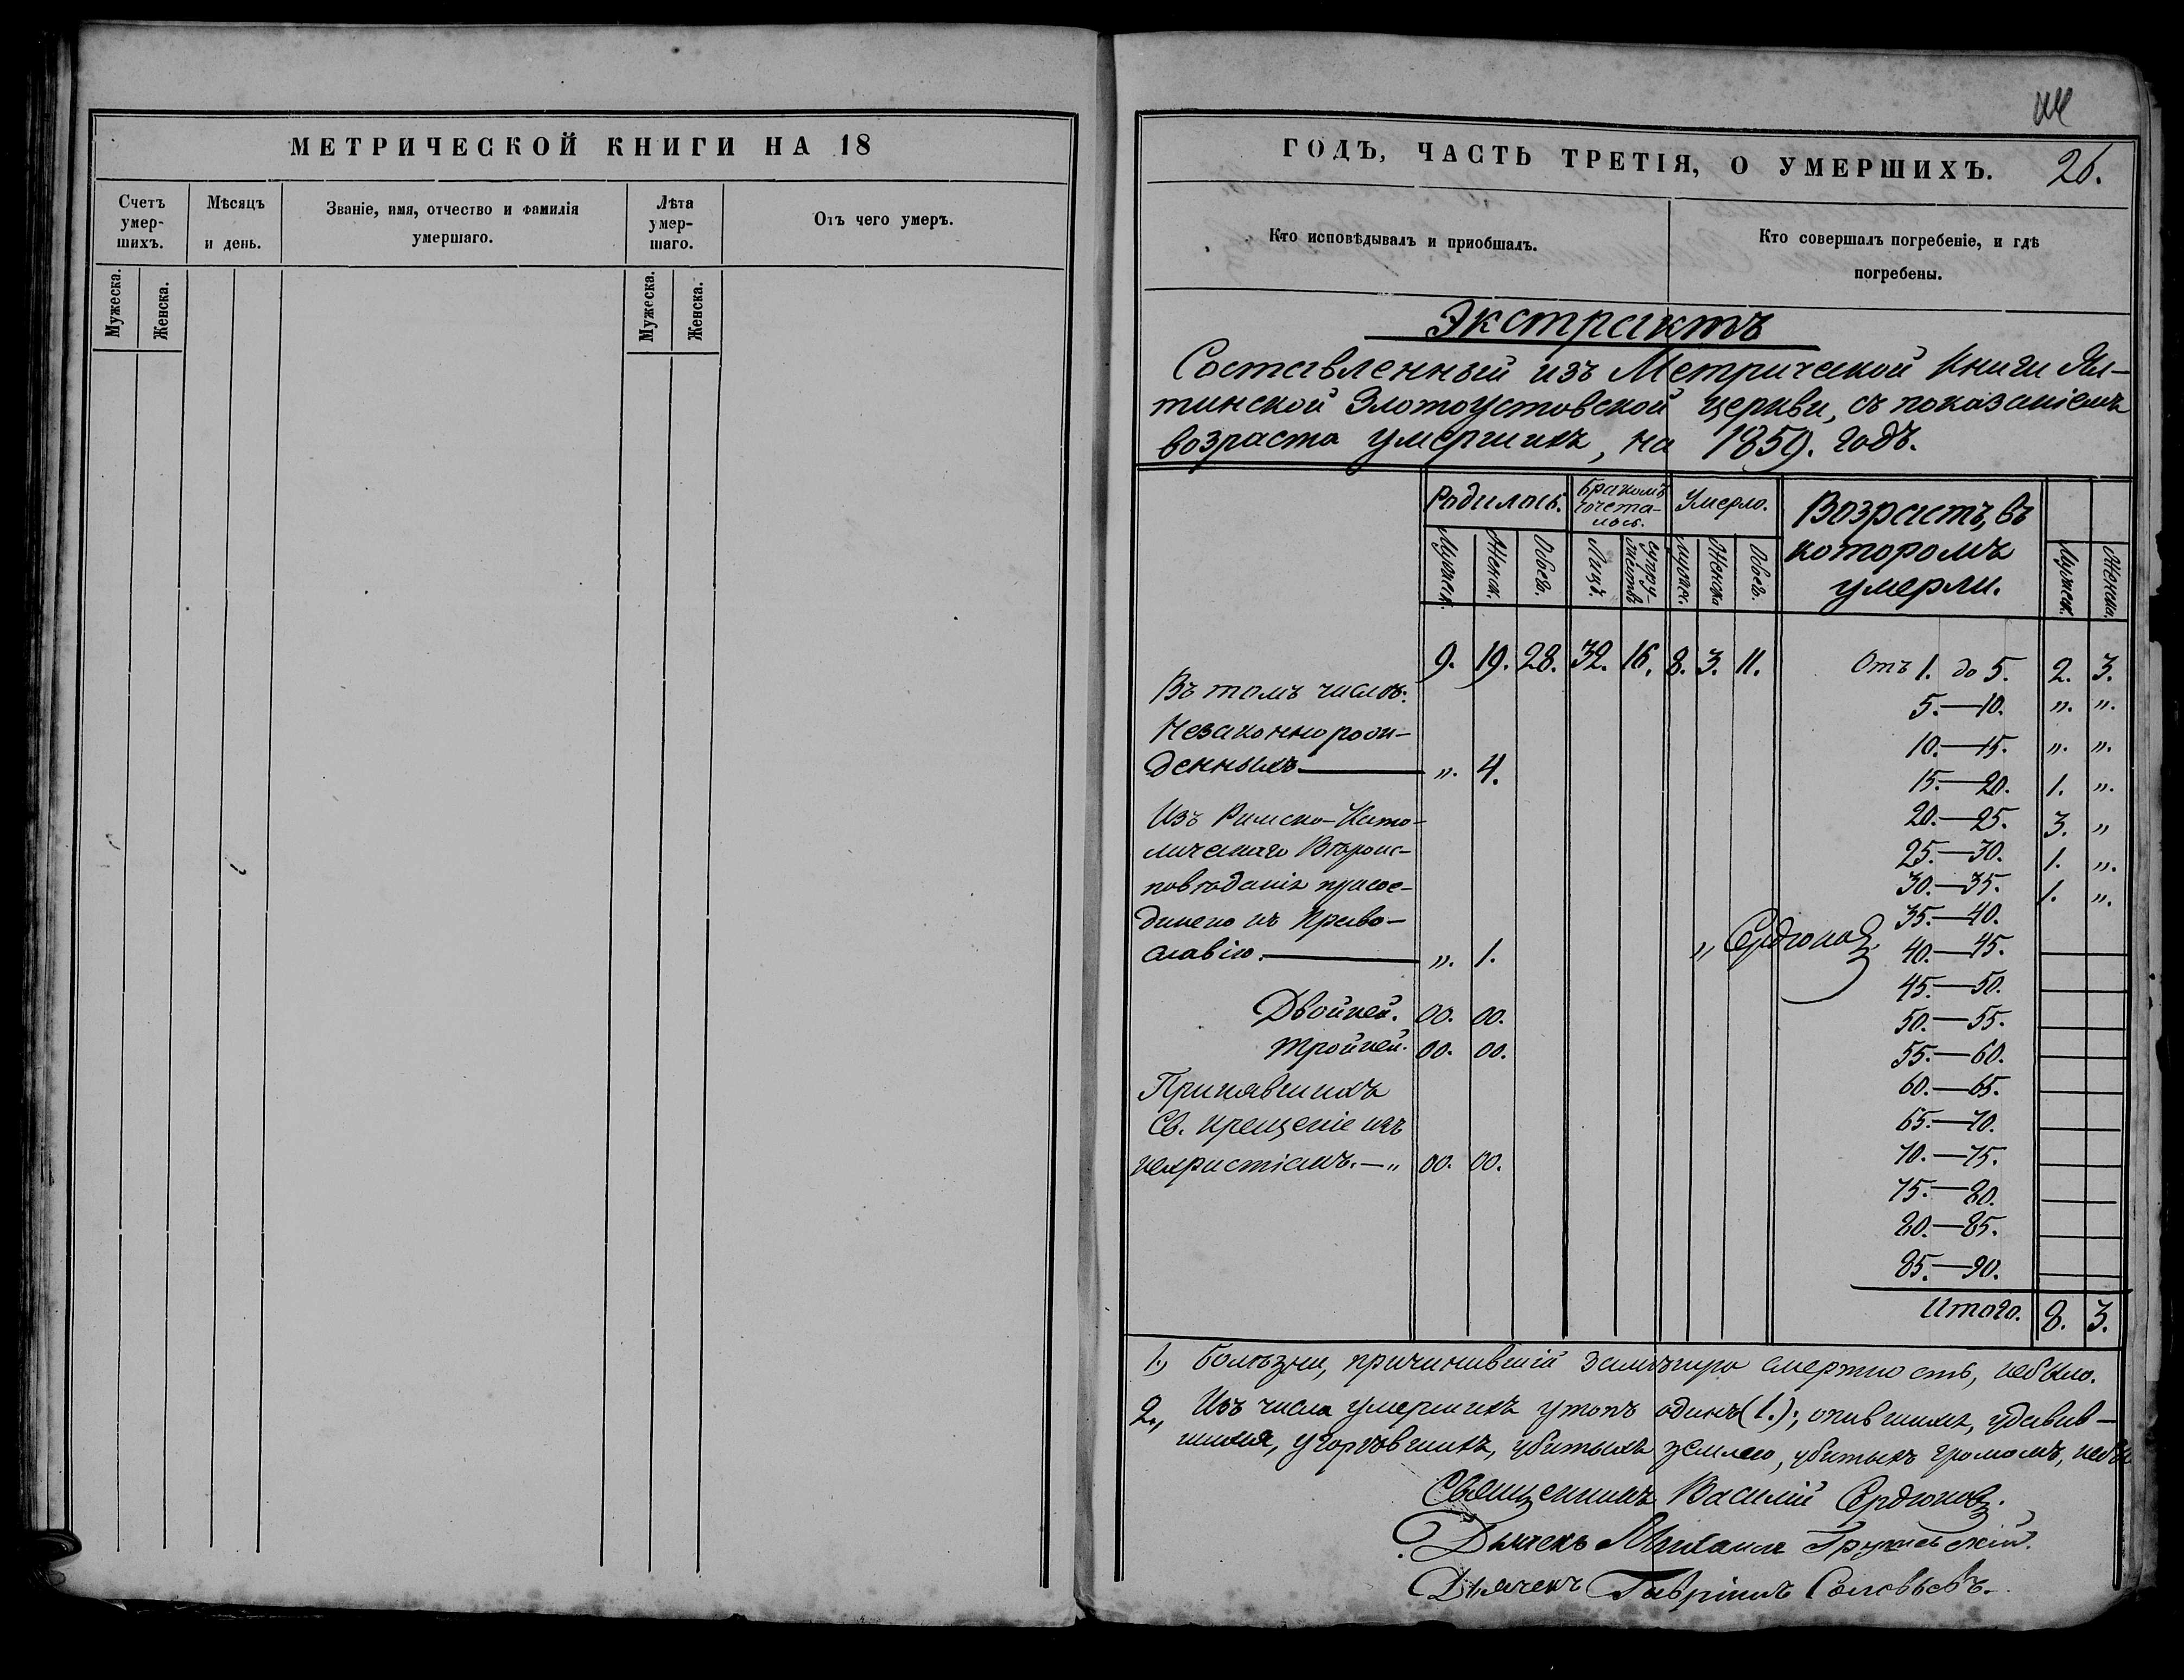 МЕТРИЧЕСКОЙ КНИГИ НА 18
Счетъ умер-шихъ.
Мѣсяцъ и день.
Званіе, имя, отчество и фамилія умершаго.
Лѣта умер-шаго.
Отъ чего умеръ.
Мужеска.
Женска.
Мужеска.
Женска.
ГОДЪ, ЧАСТЬ ТРЕТІЯ, О УМЕРШИХЪ.
26.
Кто исповѣдывалъ и пріобщалъ.
Кто совершалъ погребеніе, и гдѣ
погребены.
Экстрактъ
Составленный изъ Метрической Книги Ял-
тинской Златоустовской церкви, съ показаніемъ
возраста умершихъ, на 1859. годъ.
Родилось. Бракомъ сочета-лось. Умерло. Возрастъ, въ которомъ умерли.
Мужск. Женск. Обоег. Лицъ. супру-жествъ Мужес. Женска Обоег. Мужск. Женска.
9. 19. 28. 32. 16. 8. 3. 11. Отъ 1. до 5. 2. 3.
Въ томъ числѣ:
5.—10. ". ".
Незаконнорож-
10.—15. ". ".
денныхъ— ". 4.
15.—20. 1. ".
Изъ Римско-Като-
20.—25. 3. "
лическаго Вѣроис-
25.—30. 1. ".
повѣданія присое-
30.—35. 1. ".
динено къ Право-
35.—40.
славію.— ". 1. " Сердюковъ
40.—45.
45.—50.
Двойней. 00. 00.
50.—55.
Тройней. 00. 00.
55.—60.
Принявшихъ
60.—65.
Св. крещеніе изъ
65.—70.
нехристіанъ.—" 00. 00.
70.—75.
75.—80.
80.—85.
85.—90.
Итого. 8. 3.
1., Болѣзни, причинившій смертность, небыло.
2., Изъ числа умершихъ утопъ одинъ (1.); опившихся, удавив-
шихся, угорѣвшихъ, убитыхъ землею, убитыхъ громомъ, небы
Священникъ Василій Сердюковъ.
Дьячекъ Михаилъ
Дьячекъ Гавріилъ Соловьевъ.